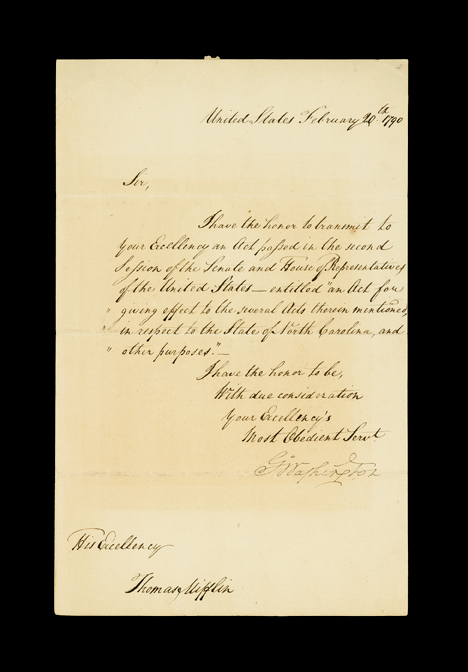 United States February 20th 1790
Sir,
I have the honor to transmit to
your Excellency an Act passed in the second
Session of the Senate and House of Representatives
of the United States — entitled "an Act for
" giving effect to the several Acts therein mentioned,
" in respect to the State of North Carolina, and
" other purposes." —
I have the honor to be,
With due consideration
Your Excellency's
Most Obedient Servt
Go Washington
His Excellency
Thomas Mifflin